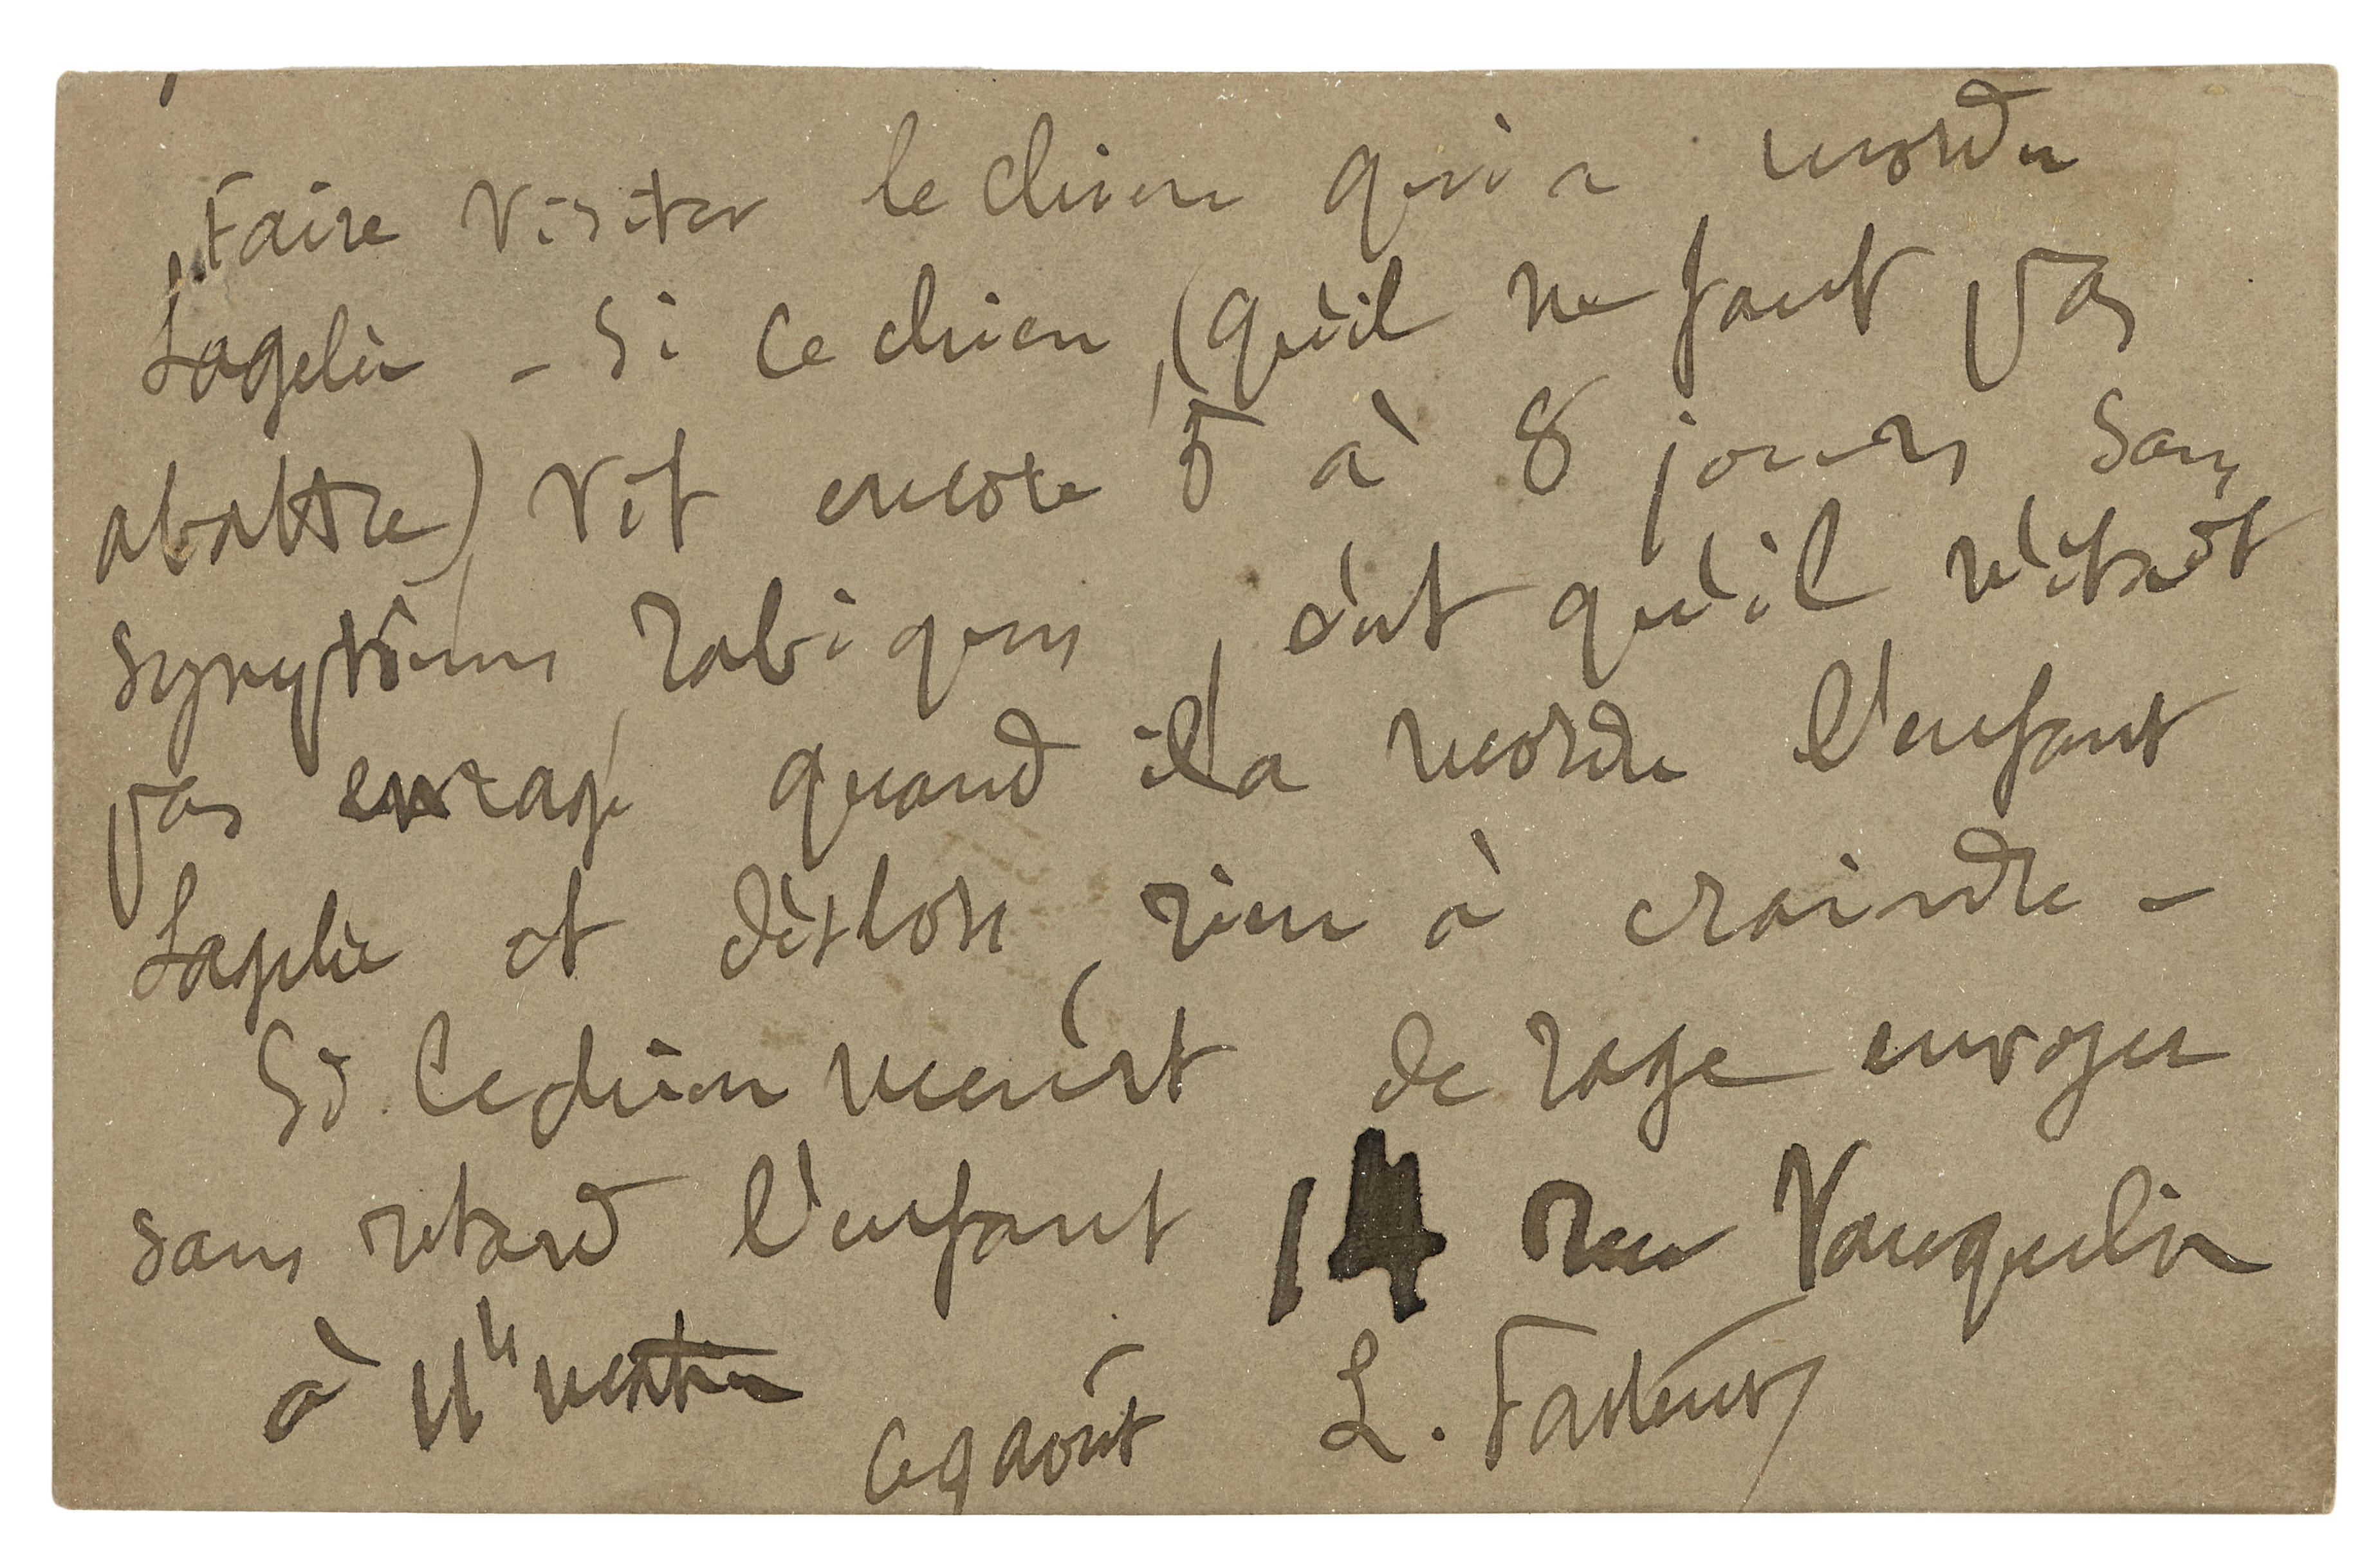 Faire visiter le chien qui a mordu
Lagelie - Si ce chien, (qu'il ne faut pas
abattre) vit encore 5 à 8 jours sans
symptômes rabiques, c'est qu'il n'était
pas enragé quand il a mordu l'enfant
Lagelie et dès lors, rien à craindre -
Si le chien meurt de rage envoyer
sans retard l'enfant 14 rue Vauquelin
à
ce 9 août L. Pasteur